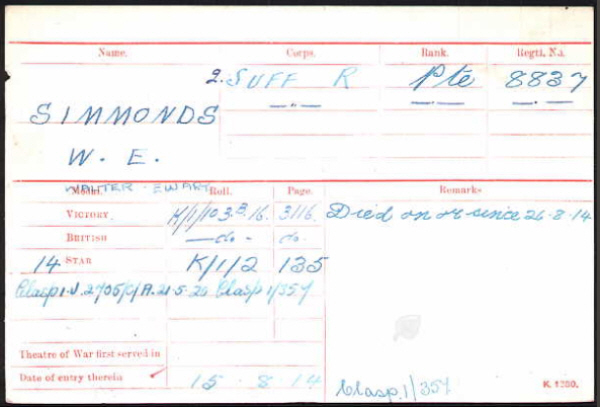 Name. Corps. Rank. Regtl. No.
2. SUFF R Pte 8837
SIMMONDS
W. E.
WALTER - EWART
Medal. Roll. Page. Remarks
VICTORY K/1/103.B.16. 3116. Died on or since 26.8.14
BRITISH —do- do.
14 STAR K/1/2 135
Clasp 1.V. 2705/0/A. 21.5.20 Clasp 1/357
Theatre of War first served in
Date of entry therein 15 . 8 . 14
Clasp.1/357
K. 1380.